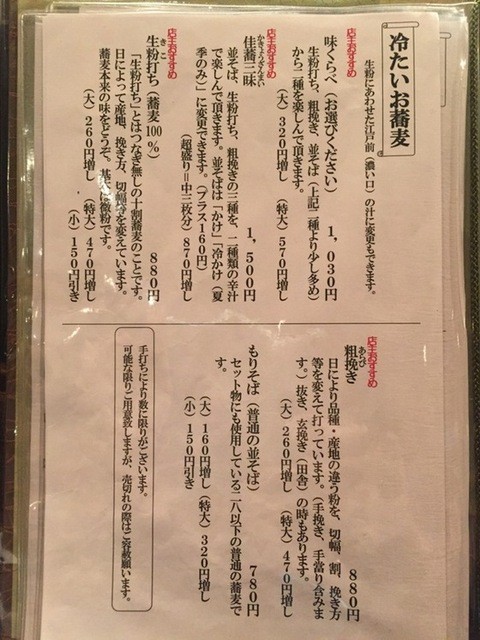 冷たいお蕎麦
生粉にあわせた江戸前（濃い口）の汁に変更もできます。
店主おすすめ
味くらべ（お選びください） 1,030円
生粉打ち、粗挽き、並そば（上記二種より少し多め）
から二種を楽しんで頂きます。
（大）320円増し （特大）570円増し
店主おすすめ
かきょうざんまい
佳蕎三昧 1,500円
並そば、生粉打ち、粗挽きの三種を、二種類の辛汁
で楽しんで頂きます。並そばは「かけ」「冷かけ（夏
季のみ）」に変更できます。（プラス160円）
（超盛り＝中三枚分）870円増し
店主おすすめ
きこ
生粉打ち（蕎麦100%） 880円
「生粉打ち」とはつなぎ無しの十割蕎麦のことです。
日によって産地、挽き方、切幅等を変えています。
蕎麦本来の味をどうぞ。基本は微粉です。
（大）260円増し （特大）470円増し （小）150円引き
店主おすすめ
あらび
粗挽き 880円
日により品種・産地の違う粉を、切幅、割、挽き方
等を変えて打っています。（手挽き、手当り含みま
す。）抜き、玄挽き（田舎）の時もあります。
（大）260円増し （特大）470円増し
もりそば（普通の並そば） 780円
セット物にも使用している二八以下の普通の蕎麦で
す。
（大）160円増し （特大）320円増し
（小）150円引き
手打ちにより数に限りがございます。
可能な限りご用意致しますが、売切れの際はご容赦願います。